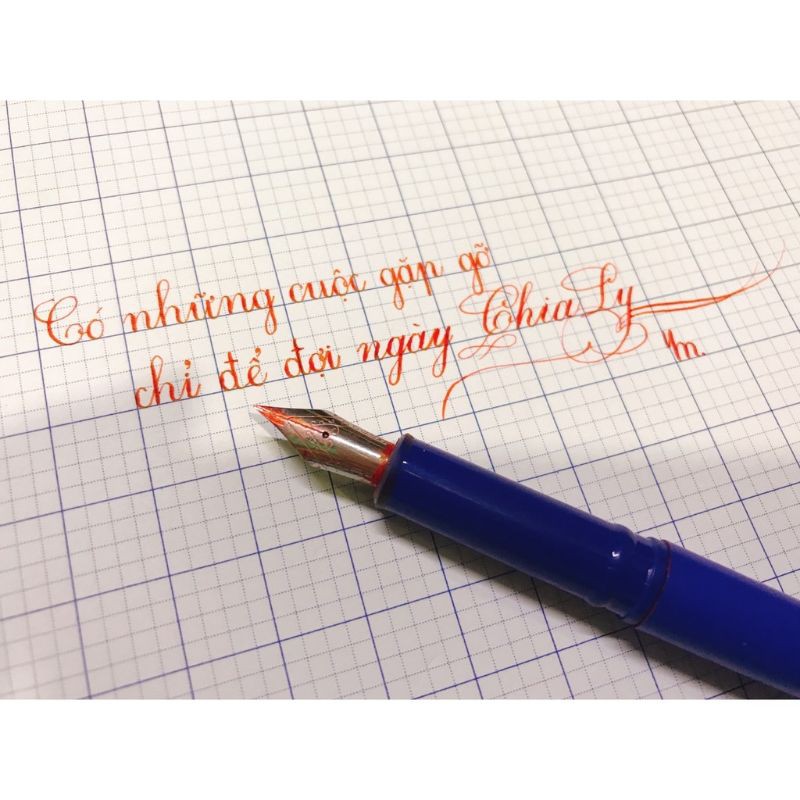 Có những cuộc gặp gỡ
chỉ để đợi ngày Chia Ly